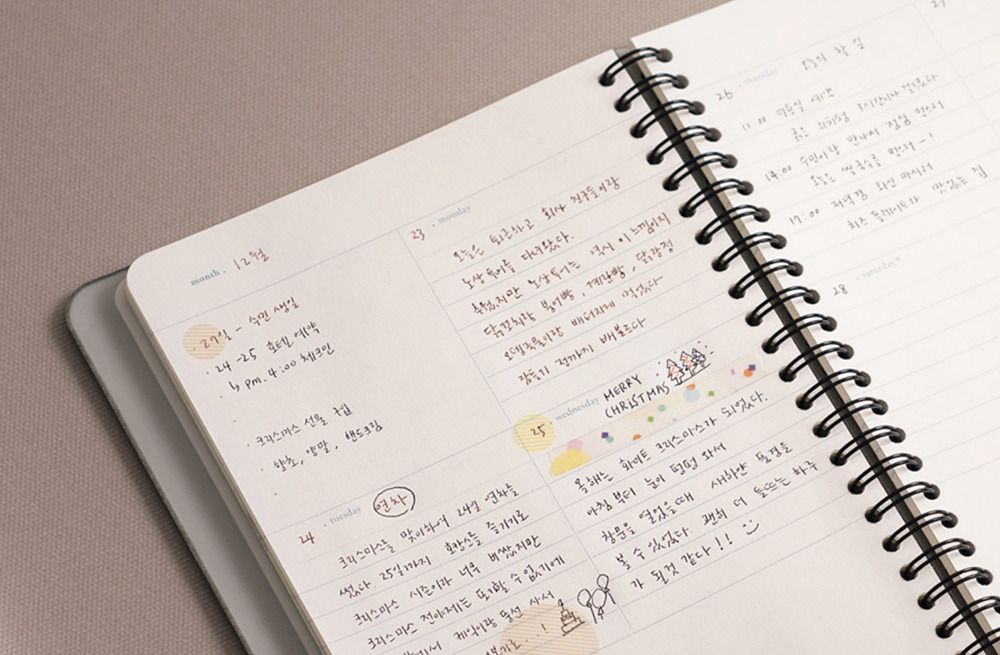 month. 12월
· 27일 - 수민 생일
· 24-25 호텔 예약
↳ pm. 4:00 체크인
· 크리스마스 선물 구입
· 향초, 양말, 핸드크림
23 · monday
오늘은 퇴근하고 회사 친구들이랑
노상투어를 다녀왔다.
추웠지만 노상투어는 역시 이 느낌이지
닭꼬치랑 붕어빵, 계란빵, 닭강정
오뎅국물이랑 배터지게 먹었다
잠들기 전까지 배불르다
24 · tuesday 연차
크리스마스를 맞이하여 24일 연차를
썼다. 25일까지 호캉스를 즐기기로
크리스마스 시즌이라 너무 비쌌지만
크리스마스 전야제는 포기할 수 없기에
케익이랑 풍선 사서
25 · wednesday MERRY
CHRISTMAS
올해는 화이트 크리스마스가 되었다.
아침부터 눈이 펑펑 와서
창문을 열었을때 새하얀 풍경을
볼 수 있었다. 괜히 더 들뜨는 하루
가 될것 같다!!
26 · thursday 오늘의 할 일
11:00 미용실 예약
14:00 수민이랑 만나서 점심 먹기
오늘은 쌀국수를 먹자-!
17:00 저녁겸 와인 마시러
치즈 플레이트가 맛있는 집
28 · saturday